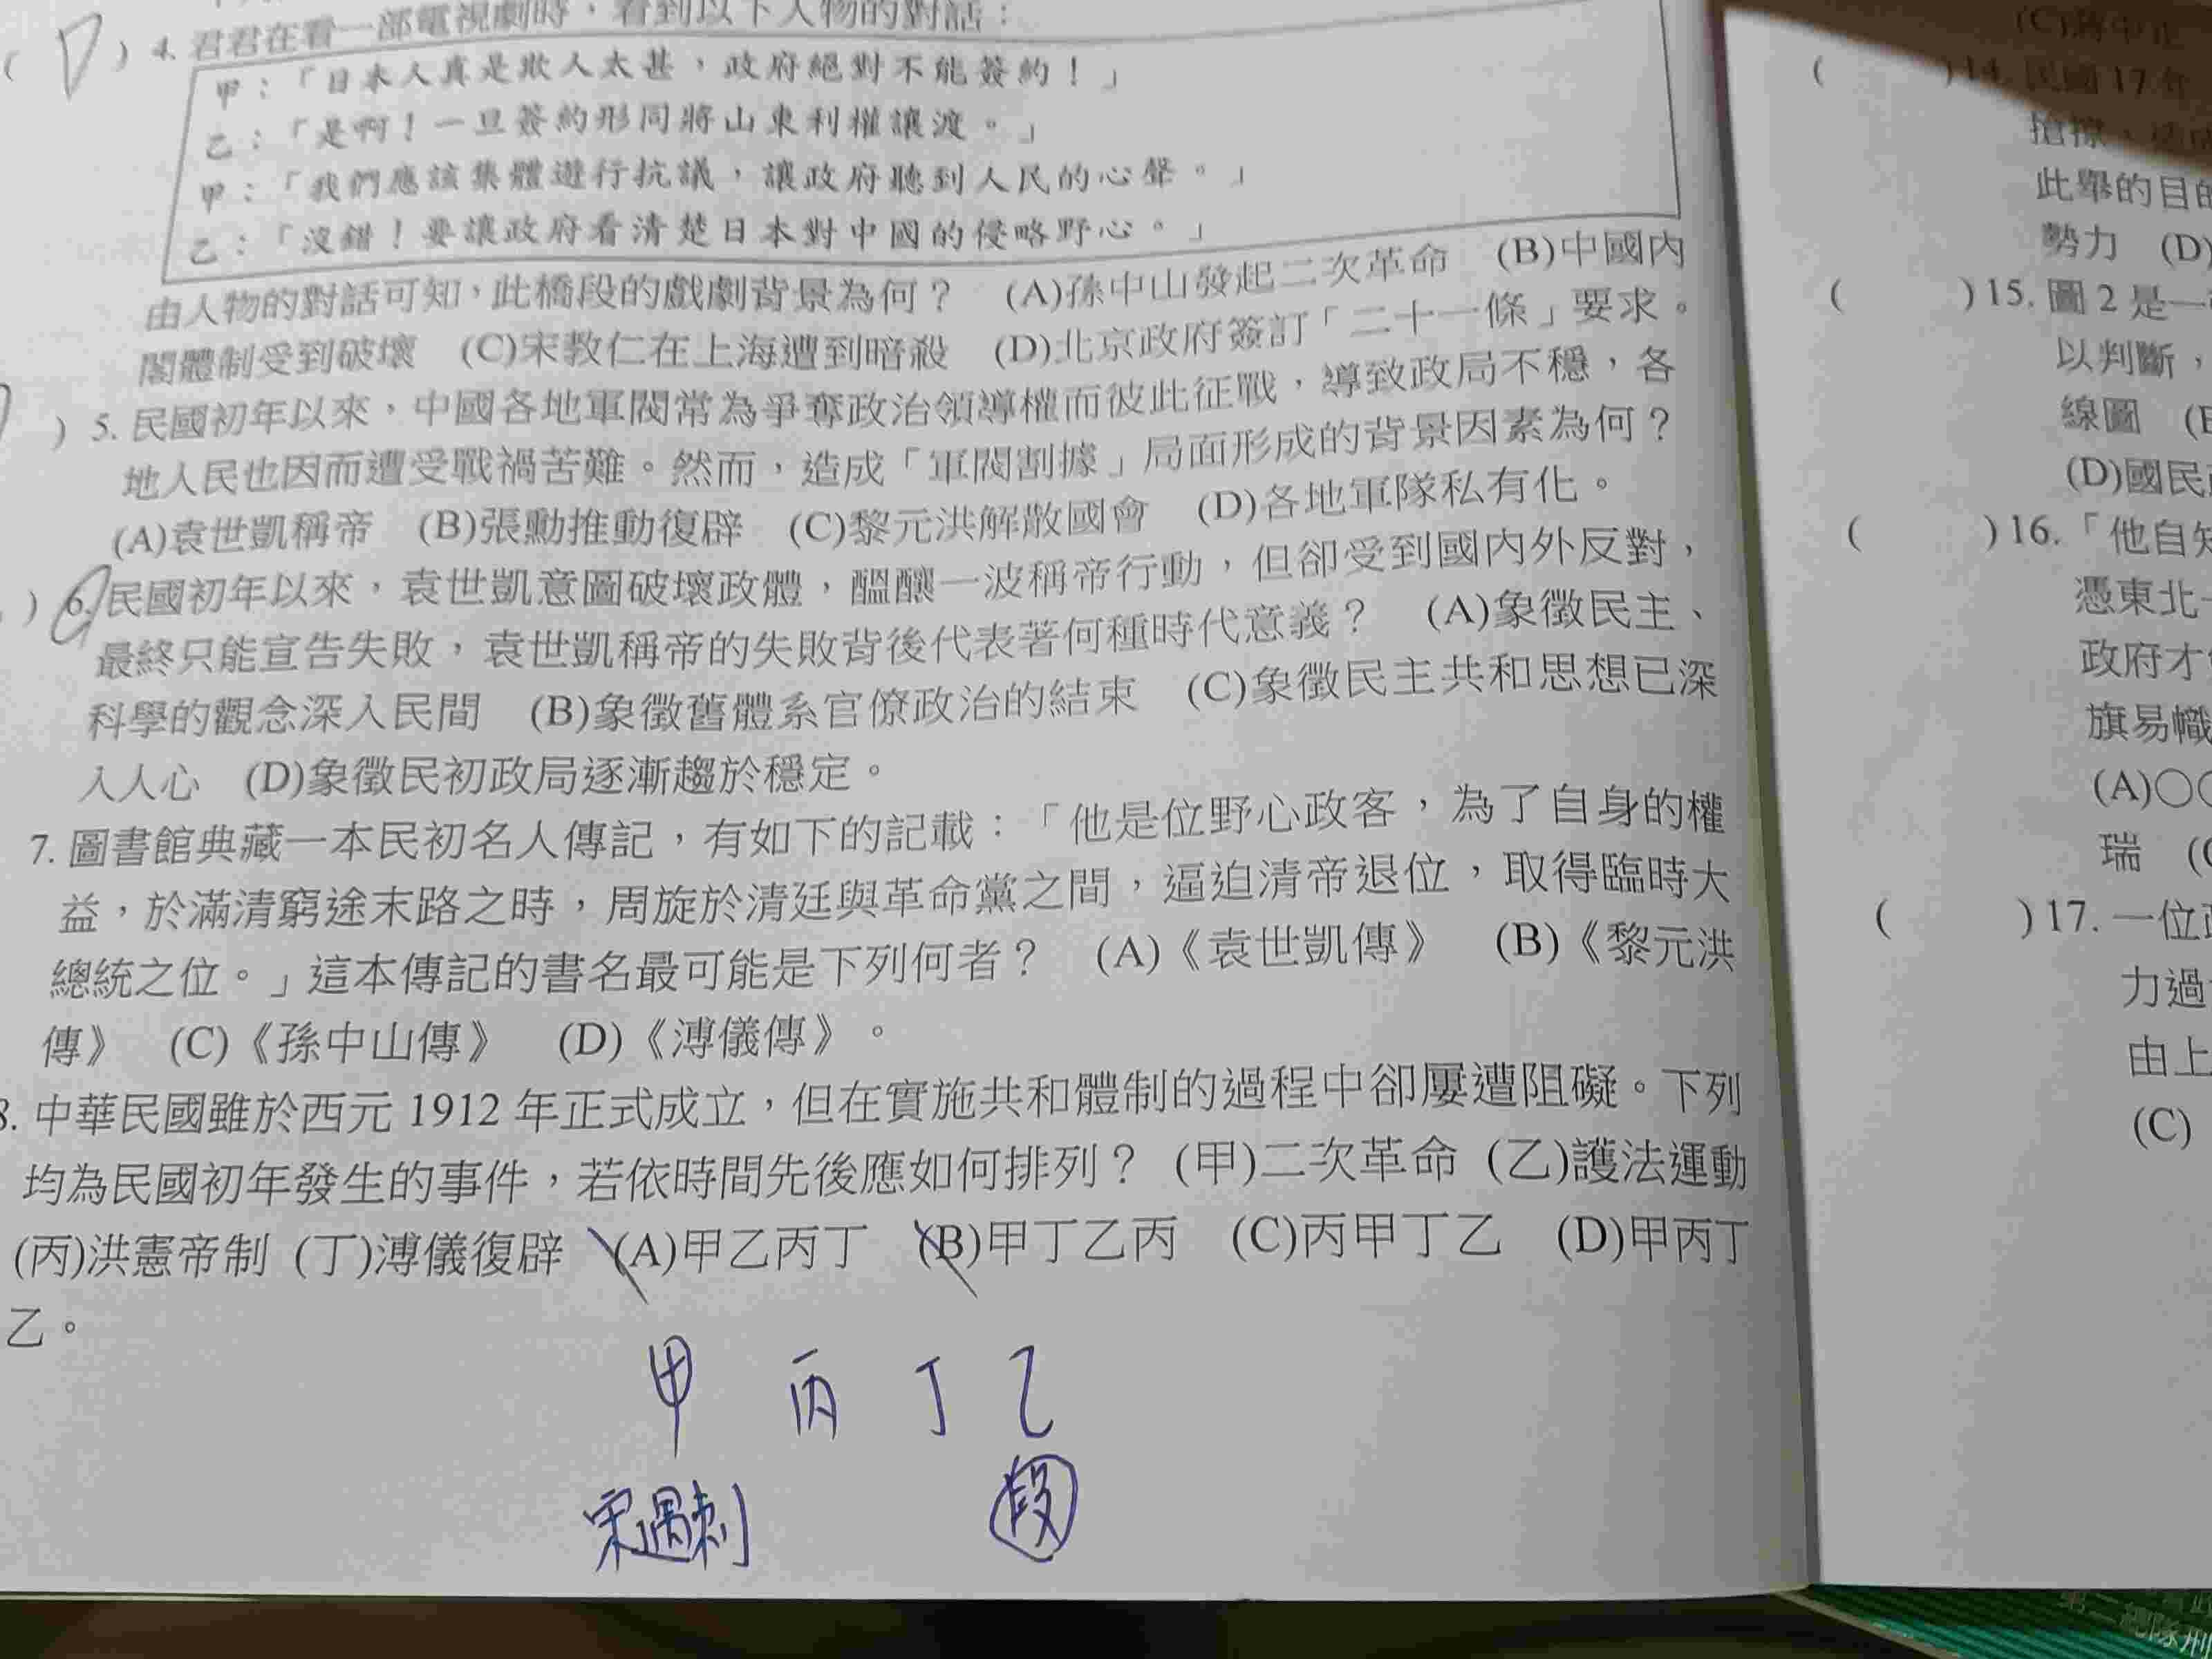 ( D ) 4. 君君在看一部電視劇時，看到以下人物的對話：
甲：「日本人真是欺人太甚，政府絕對不能簽約！」
乙：「是啊！一旦簽約形同將山東利權讓渡。」
甲：「我們應該集體遊行抗議，讓政府聽到人民的心聲。」
乙：「沒錯！要讓政府看清楚日本對中國的侵略野心。」
由人物的對話可知，此橋段的戲劇背景為何？ (A)孫中山發起二次革命 (B)中國內
閣體制受到破壞 (C)宋教仁在上海遭到暗殺 (D)北京政府簽訂「二十一條」要求。
) 5. 民國初年以來，中國各地軍閥常為爭奪政治領導權而彼此征戰，導致政局不穩，各
地人民也因而遭受戰禍苦難。然而，造成「軍閥割據」局面形成的背景因素為何？
(A)袁世凱稱帝 (B)張勳推動復辟 (C)黎元洪解散國會 (D)各地軍隊私有化。
) 6. 民國初年以來，袁世凱意圖破壞政體，醞釀一波稱帝行動，但卻受到國內外反對，
最終只能宣告失敗，袁世凱稱帝的失敗背後代表著何種時代意義？ (A)象徵民主、
科學的觀念深入民間 (B)象徵舊體系官僚政治的結束 (C)象徵民主共和思想已深
入人心 (D)象徵民初政局逐漸趨於穩定。
7. 圖書館典藏一本民初名人傳記，有如下的記載：「他是位野心政客，為了自身的權
益，於滿清窮途末路之時，周旋於清廷與革命黨之間，逼迫清帝退位，取得臨時大
總統之位。」這本傳記的書名最可能是下列何者？ (A)《袁世凱傳》 (B)《黎元洪
傳》 (C)《孫中山傳》 (D)《溥儀傳》。
8. 中華民國雖於西元 1912 年正式成立，但在實施共和體制的過程中卻屢遭阻礙。下列
均為民國初年發生的事件，若依時間先後應如何排列？ (甲)二次革命 (乙)護法運動
(丙)洪憲帝制 (丁)溥儀復辟 (A)甲乙丙丁 (B)甲丁乙丙 (C)丙甲丁乙 (D)甲丙丁
乙。
甲 丙 丁 乙
宋遇刺 段
(C)蔣中正
( ) 14. 民國 17 年
搶掠、
此舉的目的
勢力 (D)
( ) 15. 圖 2 是一
以判斷，
線圖
(D)國民
( ) 16. 「他自知
憑東北
政府才
旗易幟
(A)○
瑞
( ) 17. 一位
力過
由上
(C)
第二總隊